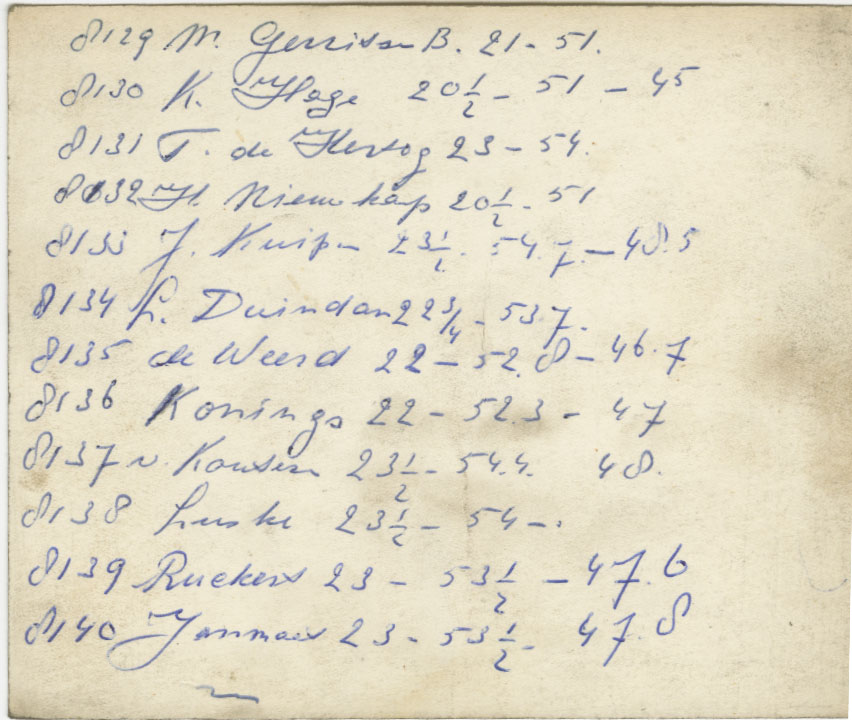 8129 M. Gerritsen B. 21 - 51.
8130 K. Hage 20 1/2 - 51 - 45
8131 T. de Hertog 23 - 54.
8132 H. Nieuwkamp 20 1/2 - 51
8133 J. Kuip 23 1/2. 54.7. - 48.5
8134 L. Duindam 22 3/4 - 53.7.
8135 de Weerd 22 - 52.8 - 46.7
8136 Konings 22 - 52.3 - 47
8137 v. 23 1/2 - 54.4. 48.
8138 Luske 23 1/2 - 54 - .
8139 Ruckert 23 - 53 1/2 - 47.6
8140 Janmaat 23 - 53 1/2 - 47.8